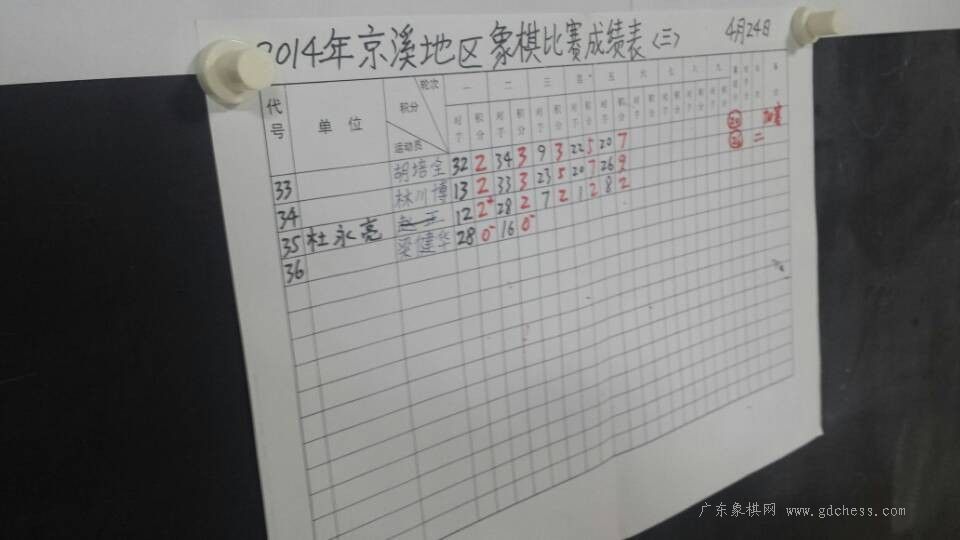 2014年京溪地区象棋比赛成绩表〈三〉 4月24日
代号 单位 轮次 积分 运动员 一 二 三 四 五 六 七 八 九
对手 积分 对手 积分 对手 积分 对手 积分 对手 积分
33 胡培全 32 2 34 3 9 3 22 5 20 7
34 林川博 13 2 33 3 23 5 20 7 26 9 二
35 杜永亮 12 2+ 28 2 7 2 1 2 8 2
36 梁健华 28 0- 16 0-
广东象棋网 www.gdchess.com